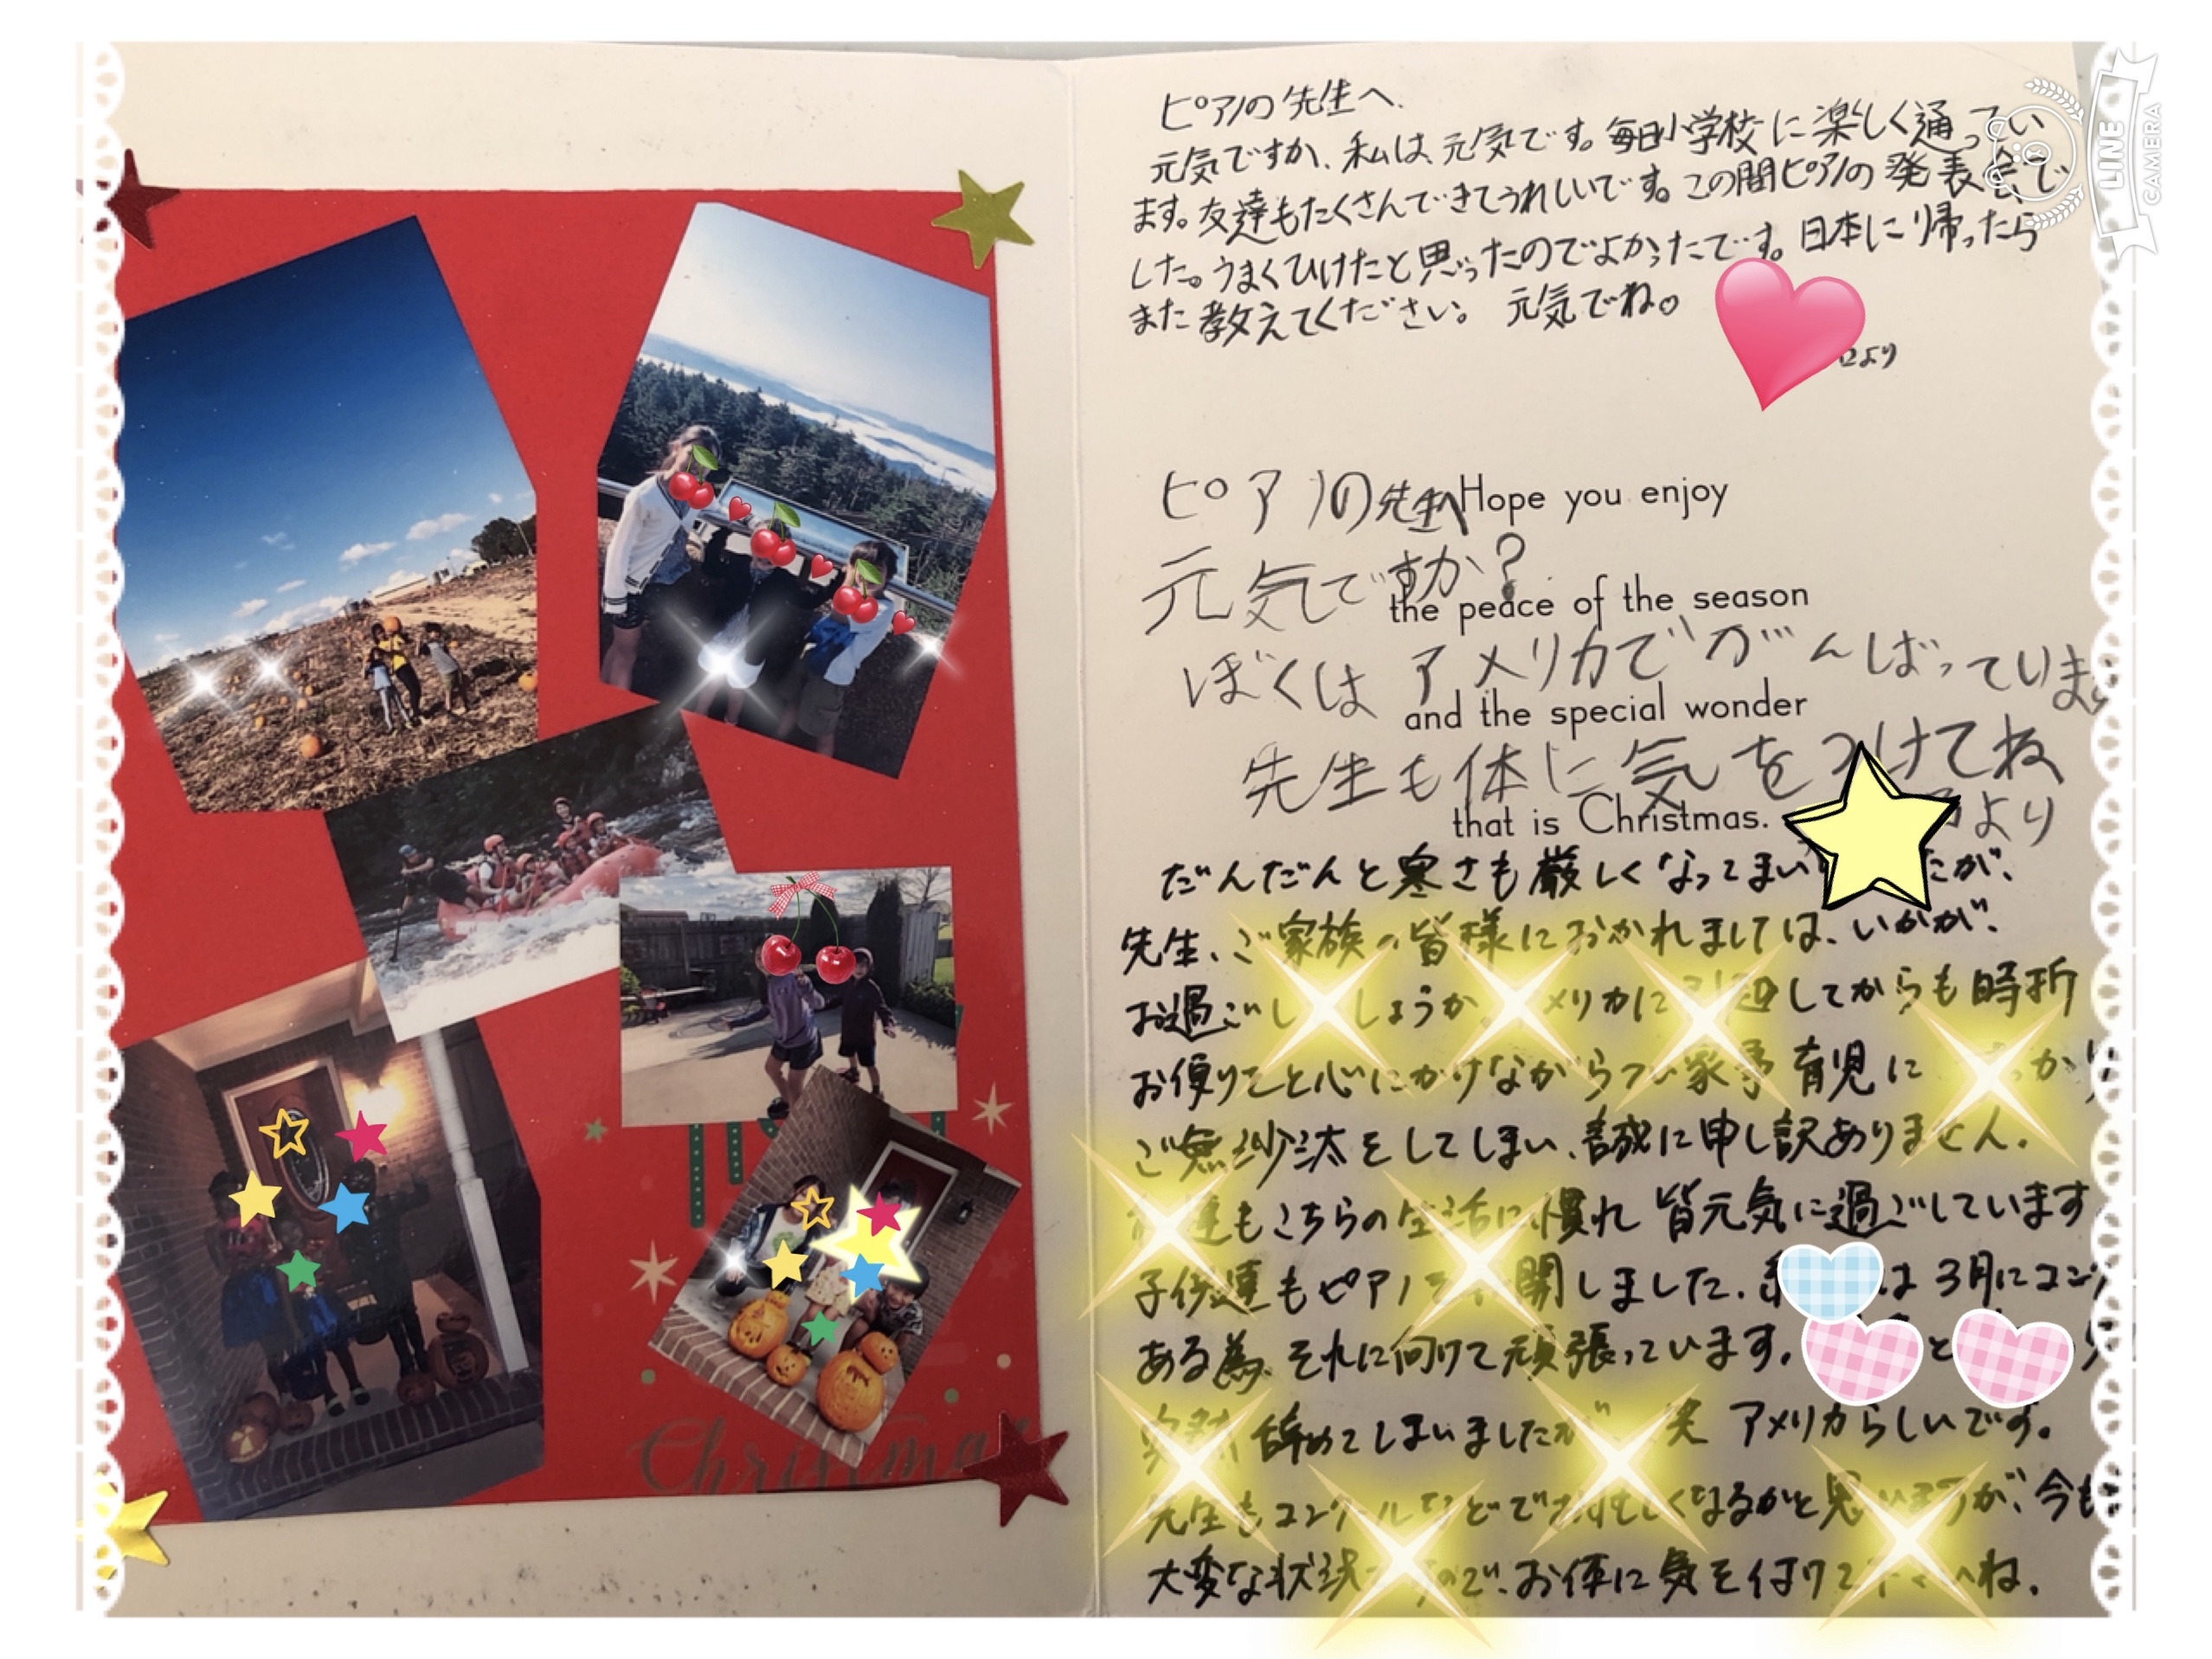 ピアノの先生へ
元気ですか、私は、元気です。毎日小学校に楽しく通ってい
ます。友達もたくさんできてうれしいです。この間ピアノの発表会で
した。うまくひけたと思ったのでよかったです。日本に帰ったら
また教えてください。 元気でね。
より
ピアノの先生へ
Hope you enjoy
元気ですか?
the peace of the season
ぼくはアメリカでがんばっています
and the special wonder
先生も体に気をつけてね
that is Christmas.
より
だんだんと寒さも厳しくなってまい たが、
先生、ご家族の皆様におかれましては、いかが、
お過ごし しょうか メリカに引越してからも時折
お便りをと心にかけながらつい家事育児に かり
ご無沙汰をしてしまい、誠に申し訳ありません。
達もこちらの生活に慣れ 皆元気に過ごしています
子供達もピアノを 開しました。 は3月にコン
ある為、それに向けて頑張っています。 と
突然 辞めてしまいましたが 笑 アメリカらしいです。
先生もコンクールなどでお忙しくなるかと思いますが、今も
大変な状況 ので、お体に気を付けて下さいね。
Christmas
LINE
CAMERA